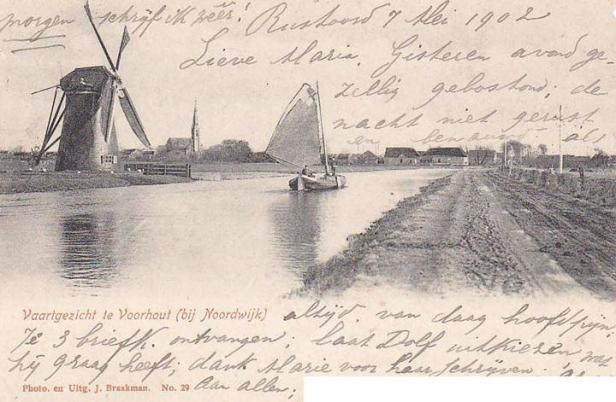 morgen schrijf ik zéér! Rustoord 7 Mei 1902
Lieve Maria. Gisteren avond ge-
zellig gebostond; de
nacht niet gerust
en als
Vaartgezicht te Voorhout (bij Noordwijk)
altijd. van daag hoofdpijn,
Je 3 briefk. ontvangen; laat Dolf uitkiezen wat
hij graag heeft; dank Marie voor haar schrijven.
Photo. en Uitg. J. Braakman. No. 29
aan allen;